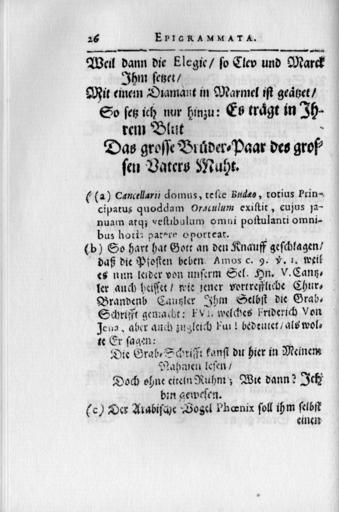 26 EPIGRAMMATA.
Weil dann die Elegie/ so Clev und Marck
Ihm setzet/
Mit einem Diamant in Marmel ist geätzet/
So setz ich nur hinzu: Es trägt in Ih-
rem Blut
Das grosse Brüder-Paar des gros-
sen Vaters Muht.
(a) Cancellarii domus, teste Budæo, totius Prin-
cipatus quoddam Oraculum existit, cujus ja-
nuam atq; vestibulum omni postulanti omni-
bus horis patere oporteat.
(b) So hart hat Gott an den Knauff geschlagen/
daß die Pfosten beben. Amos c. 9. v. 1. weil
es nun leider von unserm Sel. Hn. V. Cantz-
ler auch heisset/ wie jener vortreffliche Chur-
Brandenb Cantzler Ihm Selbst die Grab-
Schrifft gemacht: FVI. welches Friderich Von
Jena, aber auch zugleich Fui! bedeutet/ als wol-
te Er sagen:
Die Grab-Schrifft kanst du hier in Meinem
Nahmen lesen/
Doch ohne eiteln Ruhm; Wie dann? Ich
bin gewesen.
(c) Der Arabische Vogel Phœnix soll ihm selbst
einen